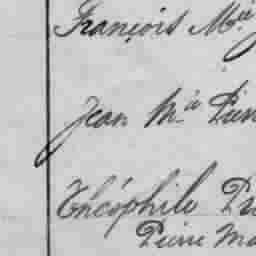 François Mie
Jean Mia Pier
Théophile Pr
Pierre Ma